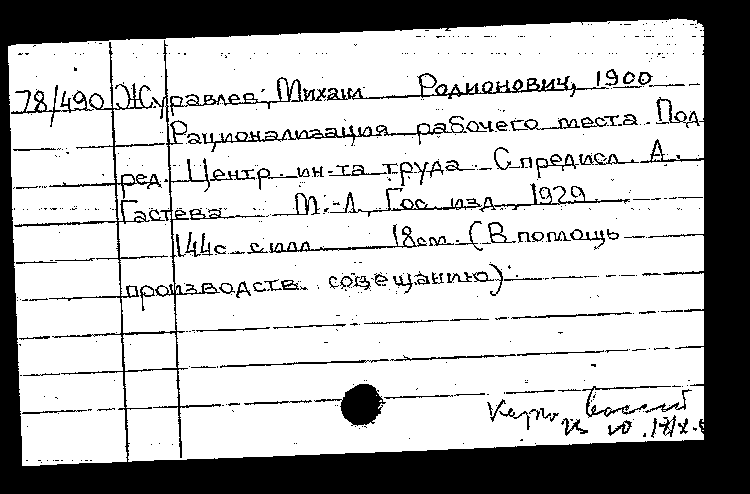 78/490 Журавлев, Михаил Родионович, 1900
Рационализация рабочего места. Под
ред. Центр. ин-та труда. С предисл. А.
Гастева М.-Л., Гос. изд., 1929
144с. с илл. 18см. (В помощь
производств. совещанию).